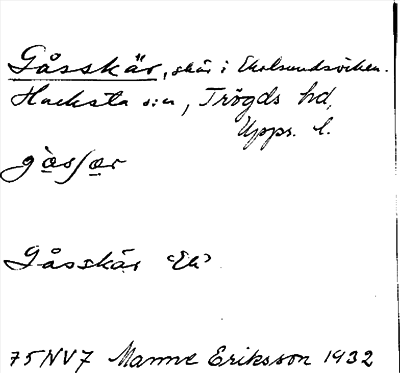 Gåsskär, skär i Ekolsundsviken.
Hacksta s:n, Trögds hd,
Upps. l.
gåsʃær
Gåsskär ‹Ek›
75NV7 Manne Eriksson 1932